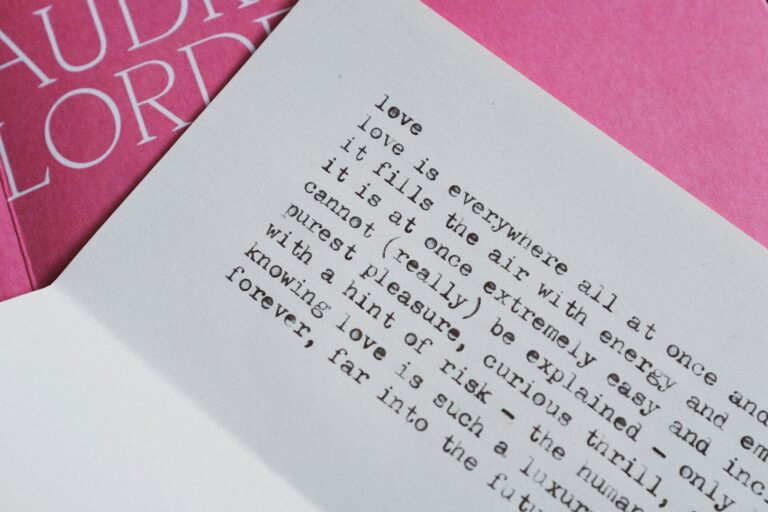 AUDR
LORD
love
love is everywhere all at once and
it fills the air with energy and em
it is at once extremely easy and inc
cannot (really) be explained – only
purest pleasure, curious thrill,
with a hint of risk – the human,
knowing love is such a luxur
forever, far into the futu